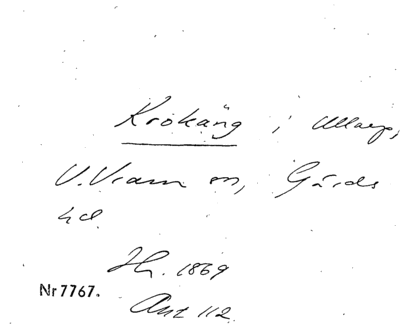 Krokäng i Ullarp,
V. Vram sn, Gärds
hd
Jh. 1869
Nr 7767.
Ant 112